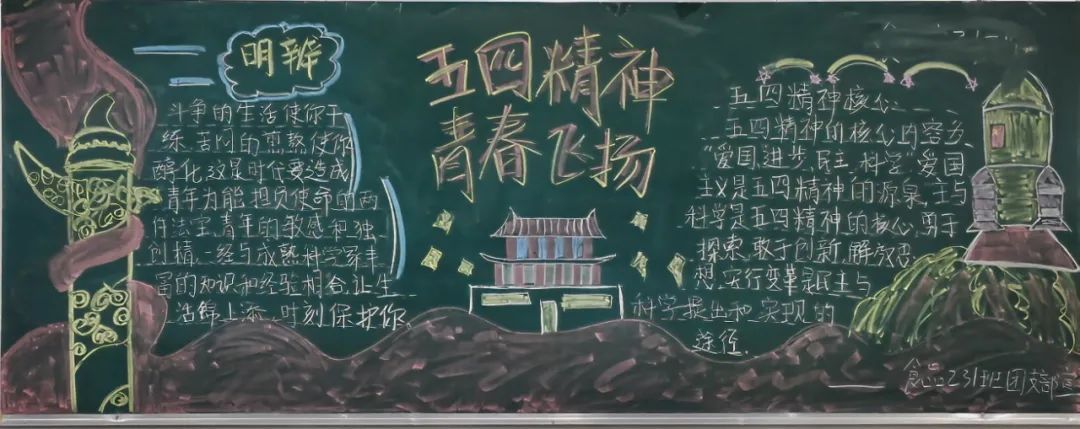 明辨
斗争的生活使你干
练，苦闷的煎熬使你
醇化，这是时代要造成
青年为能担负使命的两
件法宝，青年的敏感和独
创精，一经与成熟科学家丰
富的知识和经验相合，让生
活锦上添，时刻保护你
五四精神
青春飞扬
五四精神核心
五四精神的核心内容为
“爱国、进步、民主、科学”爱国
主义是五四精神的源泉，主与
科学是五四精神的核心，勇于
探索、敢于创新、解放思
想、实行变革是民主与
科学提出和实现的
途径.
食品231班团支部